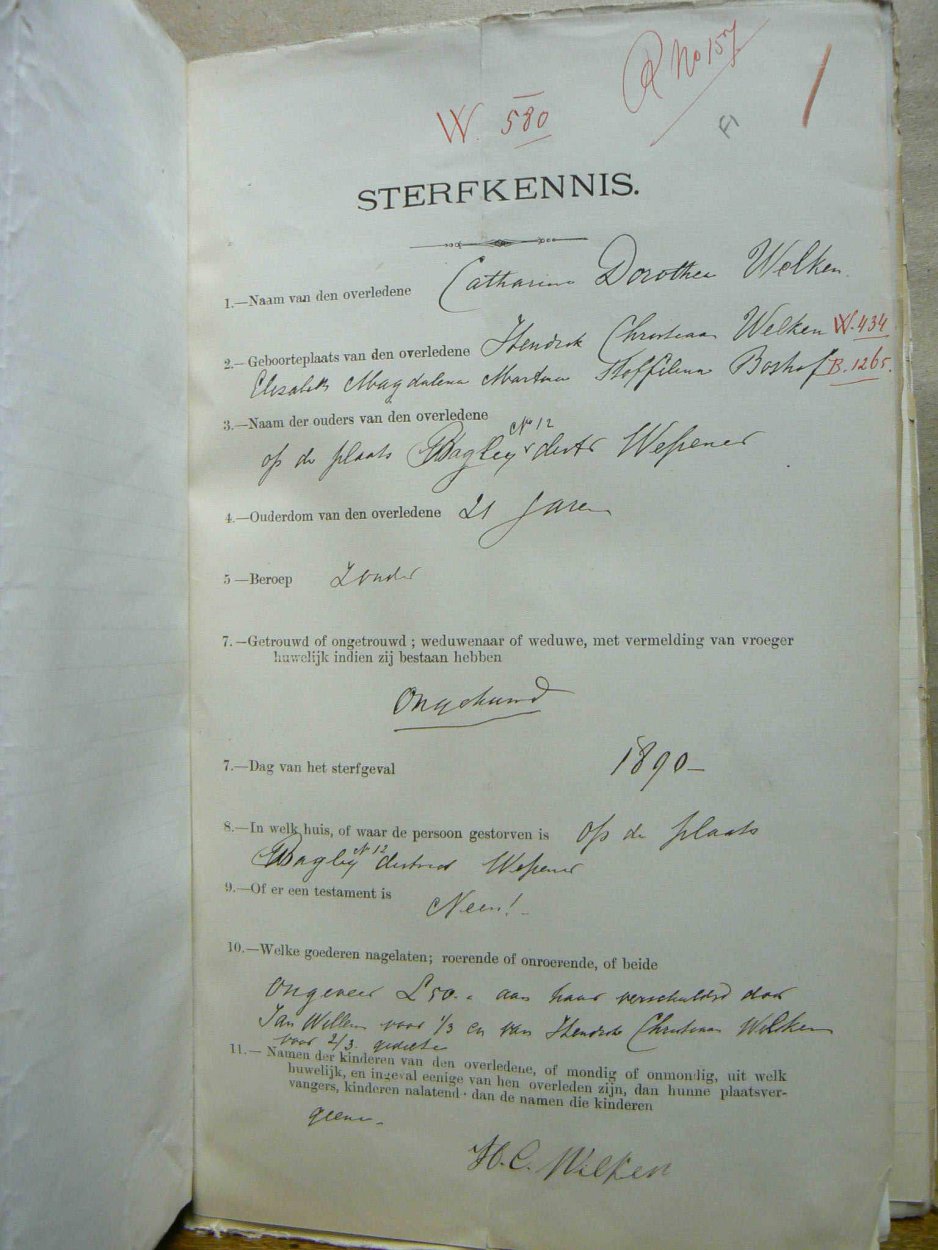 R No 157
W. 580
F1
STERFKENNIS.
1.—Naam van den overledene Catharina Dorothea Welken.
2.—Geboorteplaats van den overledene Hendrik Christiaan Welken W. 434
Elizabeth Magdalena Martina Stoffelina Boshof B. 1265.
3.—Naam der ouders van den overledene
op de plaats Bagley No 12 distr Wepener
4.—Ouderdom van den overledene 21 Jaren
5—Beroep Zonder
7.—Getrouwd of ongetrouwd; weduwenaar of weduwe, met vermelding van vroeger
huwelijk indien zij bestaan hebben
Ongehuwd
7.—Dag van het sterfgeval 1890—
8.—In welk huis, of waar de persoon gestorven is op de plaats
Bagley No 12 district Wepener
9.—Of er een testament is
Neen!
10.—Welke goederen nagelaten; roerende of onroerende, of beide
Ongeveer £50. aan haar verschuldigd door
Jan Willem voor 1/3 en van Hendrik Christiaan Wilken
voor 2/3
11.—Namen der kinderen van den overledene, of mondig of onmondig, uit welk
huwelijk, en ingeval eenige van hen overleden zijn, dan hunne plaatsver-
vangers, kinderen nalatend dan de namen die kinderen
geene.
H. C. Wilken